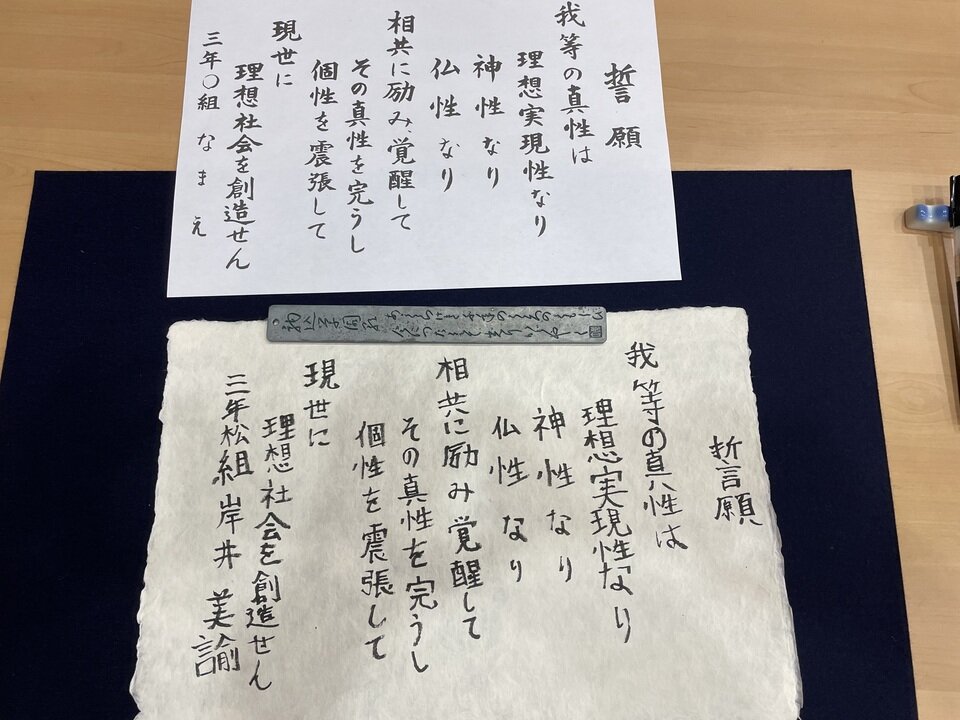 誓願
我等の真性は
理想実現性なり
神性なり
仏性なり
相共に励み、覚醒して
その真性を完うし
個性を震張して
現世に
理想社会を創造せん
三年〇組 なまえ
誓願
我等の真性は
理想実現性なり
神性なり
仏性なり
相共に励み覚醒して
その真性を完うし
個性を震張して
現世に
理想社会を創造せん
三年松組 岸井 美諭